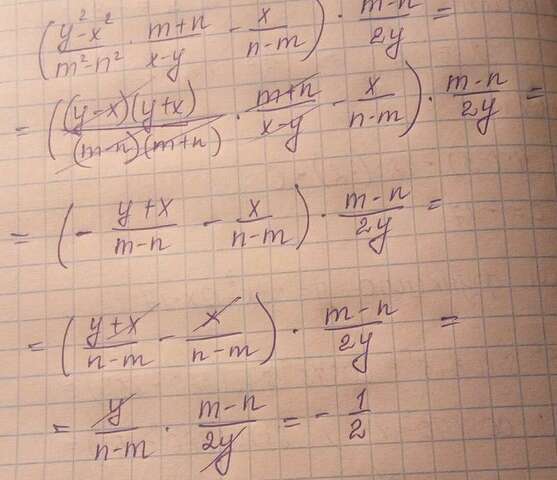 (y²-x²/m²-n² · m+n/x-y - x/n-m) · m-n/2y =
= ((y-x)(y+x)/(m-n)(m+n) · m+n/x-y - x/n-m) · m-n/2y =
= (- y+x/m-n - x/n-m) · m-n/2y =
= (y+x/n-m - x/n-m) · m-n/2y =
= y/n-m · m-n/2y = - 1/2